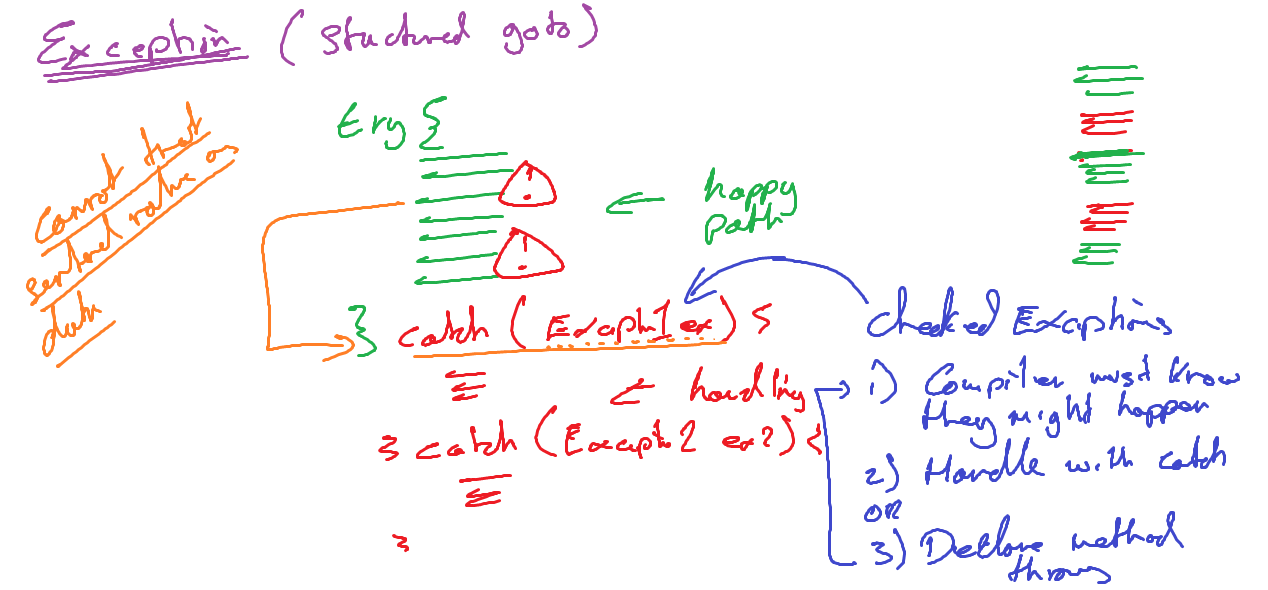 Exception (structured goto)
Cannot treat
sentinel value as
data
try {
! 
happy
path
!
} catch (Exception1 ex) {
handling
} catch (Exception2 ex2) {
}
Checked Exceptions
1) Compiler must know
they might happen
2) Handle with catch
OR
3) Declare method
throws